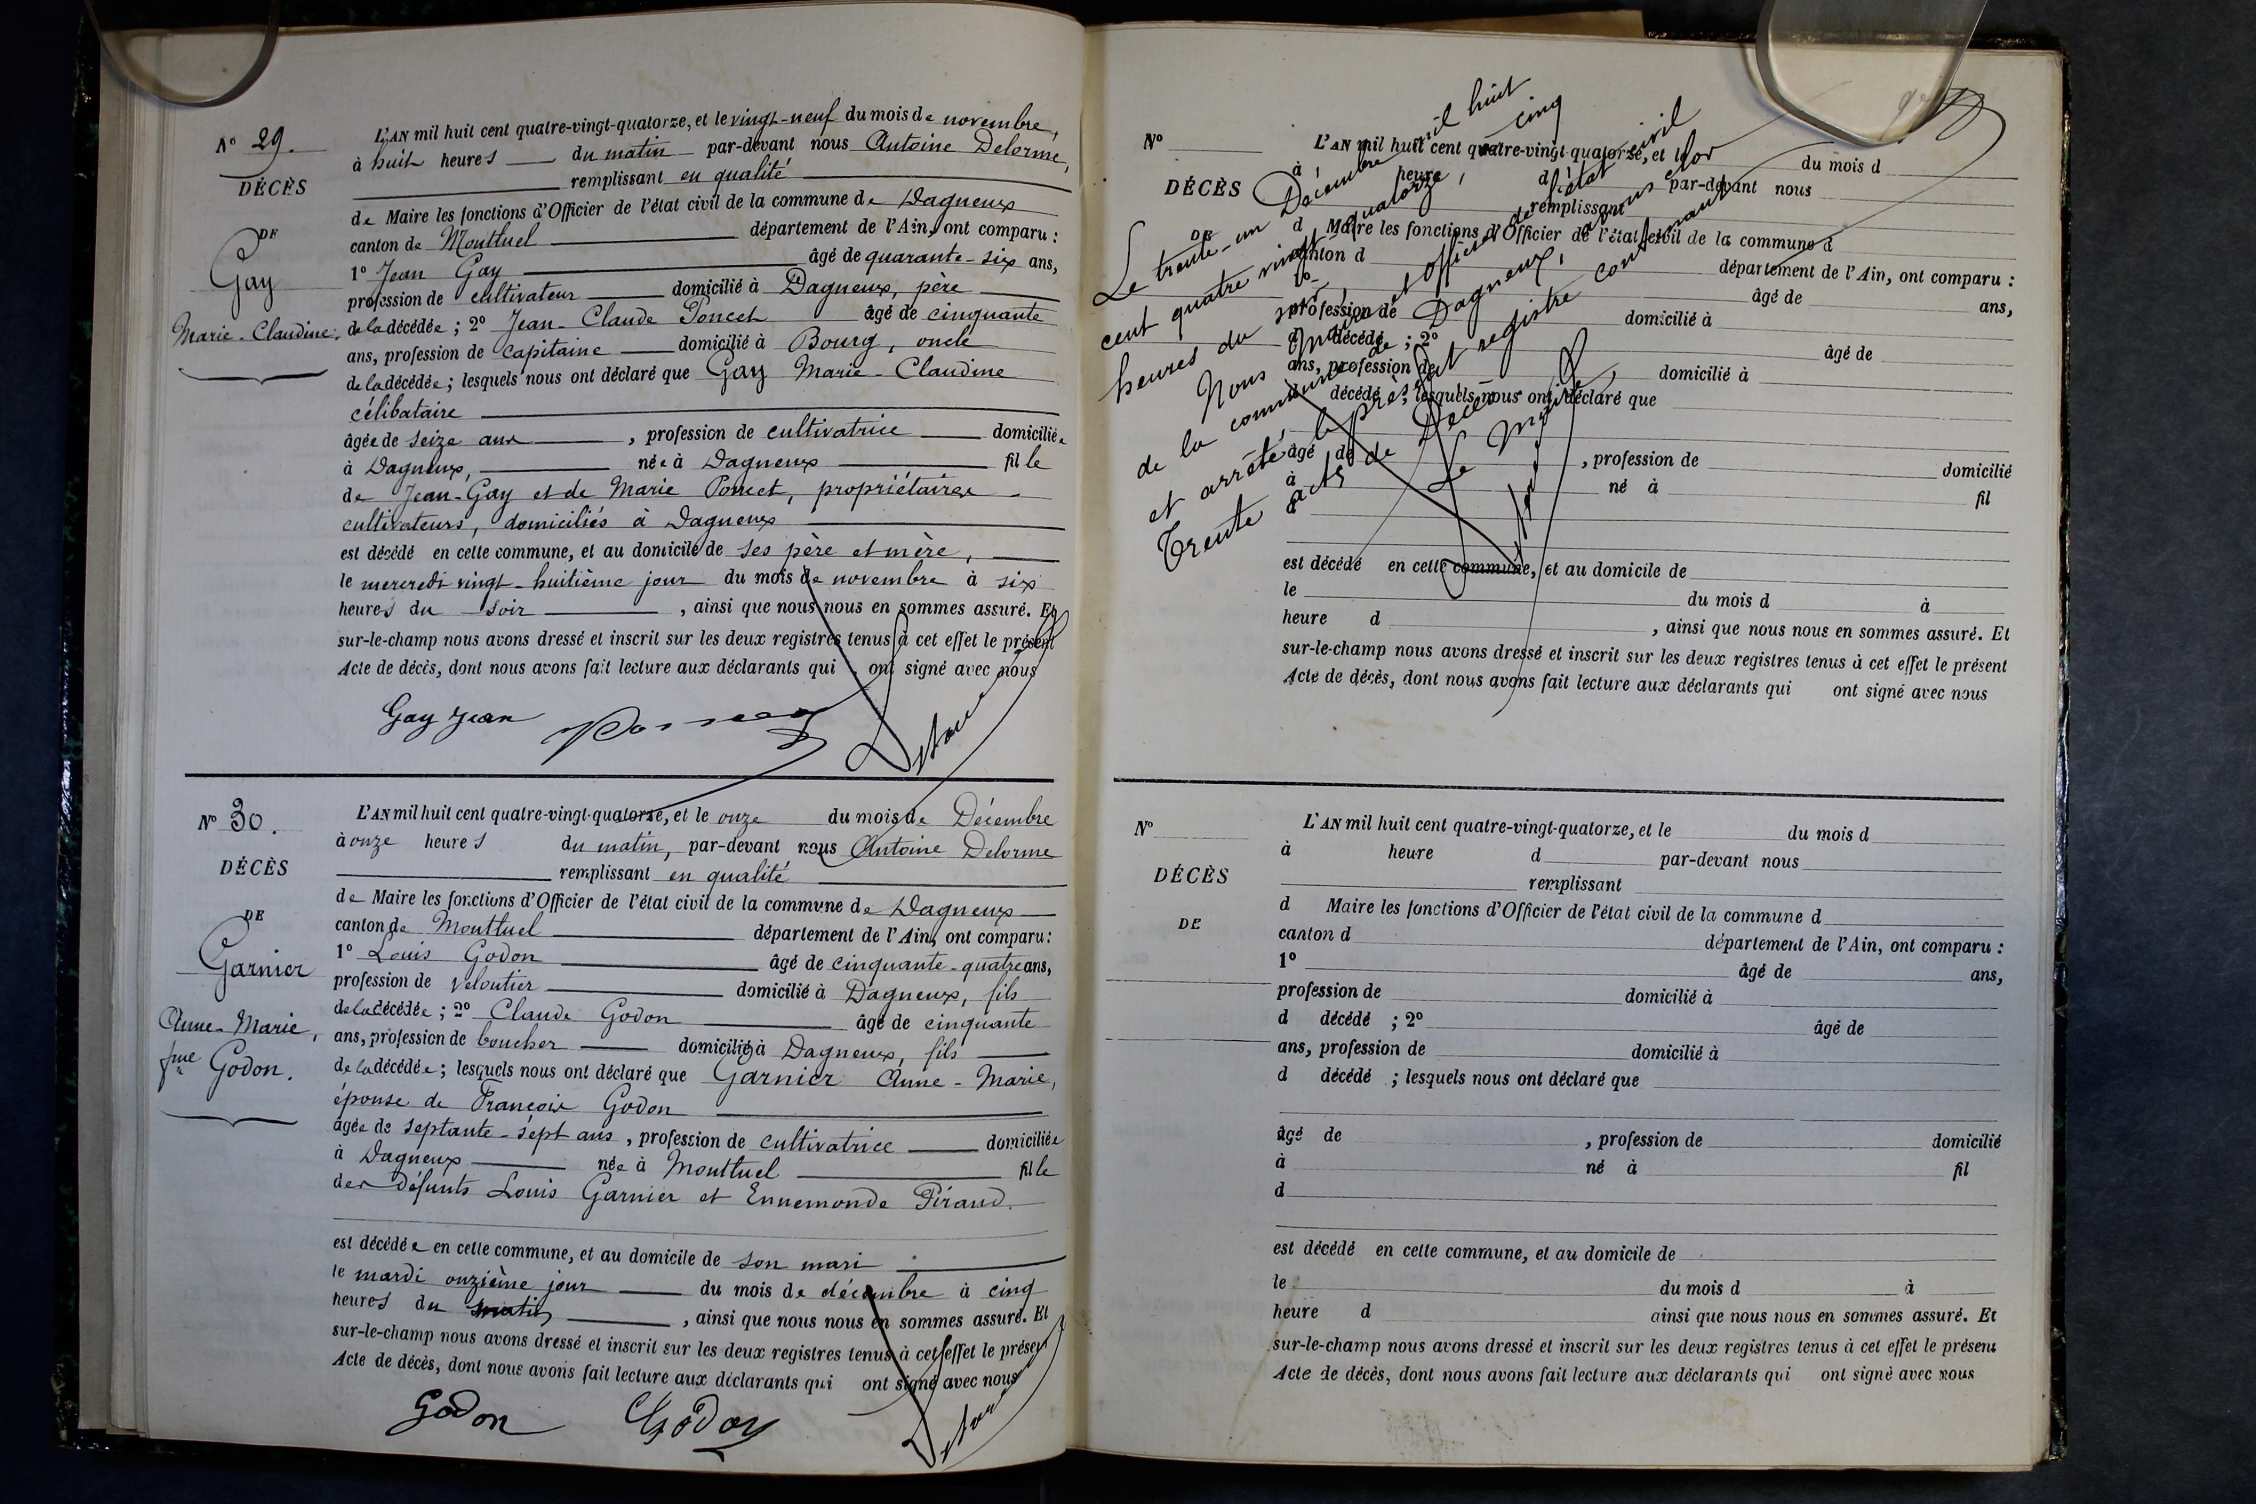 N° 29.
DÉCÈS
DE
Gay
Marie-Claudine.
L'AN mil huit cent quatre-vingt-quatorze, et le vingt-neuf du mois de novembre,
à huit heures du matin par-devant nous Antoine Delorme,
remplissant en qualité
de Maire les fonctions d'Officier de l'état civil de la commune de Dagneux
canton de Montluel département de l'Ain, ont comparu :
1° Jean Gay âgé de quarante-six ans,
profession de cultivateur domicilié à Dagneux, père
de la décédée ; 2° Jean-Claude Poncet âgé de cinquante
ans, profession de capitaine domicilié à Bourg, oncle
de la décédée ; lesquels nous ont déclaré que Gay Marie-Claudine
célibataire
âgée de seize ans, profession de cultivatrice domiciliée
à Dagneux, née à Dagneux fille
de Jean-Gay et de Marie Poncet, propriétaires
cultivateurs, domiciliés à Dagneux
est décédé en cette commune, et au domicile de ses père et mère,
le mercredi vingt-huitième jour du mois de novembre à six
heures du soir, ainsi que nous nous en sommes assuré. Et
sur-le-champ nous avons dressé et inscrit sur les deux registres tenus à cet effet le présent
Acte de décès, dont nous avons fait lecture aux déclarants qui ont signé avec nous
Gay Jean
N° 30.
DÉCÈS
DE
Garnier
Anne-Marie,
fme Godon.
L'AN mil huit cent quatre-vingt-quatorze, et le onze du mois de Décembre
à onze heures du matin, par-devant nous Antoine Delorme
remplissant en qualité
de Maire les fonctions d'Officier de l'état civil de la commune de Dagneux
canton de Montluel département de l'Ain, ont comparu :
1° Louis Godon âgé de cinquante-quatre ans,
profession de veloutier domicilié à Dagneux, fils
de la décédée ; 2° Claude Godon âgé de cinquante
ans, profession de boucher domicilié à Dagneux, fils
de la décédée ; lesquels nous ont déclaré que Garnier Anne-Marie,
épouse de François Godon
âgée de septante-sept ans, profession de cultivatrice domiciliée
à Dagneux née à Montluel fille
des défunts Louis Garnier et Ennemonde Piraud.
est décédée en cette commune, et au domicile de son mari
le mardi onzième jour du mois de décembre à cinq
heures du matin, ainsi que nous nous en sommes assuré. Et
sur-le-champ nous avons dressé et inscrit sur les deux registres tenus à cet effet le présent
Acte de décès, dont nous avons fait lecture aux déclarants qui ont signé avec nous
Godon Godon
Le trente-un Décembre mil huit
cent quatre vingt quatorze, à cinq
heures du soir,
Nous Maire et officier de l'état civil
de la commune de Dagneux, avons clos
et arrêté le présent registre contenant
Trente acts de Décès.
Le Maire,
N°
DÉCÈS
DE
L'AN mil huit cent quatre-vingt-quatorze, et le du mois d
à heure d par-devant nous
remplissant
d Maire les fonctions d'Officier de l'état civil de la commune d
canton d département de l'Ain, ont comparu :
1° âgé de ans,
profession de domicilié à
d décédé ; 2° âgé de
ans, profession de domicilié à
d décédé ; lesquels nous ont déclaré que
âgé de , profession de domicilié
à né à fil
d
est décédé en cette commune, et au domicile de
le du mois d à
heure d , ainsi que nous nous en sommes assuré. Et
sur-le-champ nous avons dressé et inscrit sur les deux registres tenus à cet effet le présent
Acte de décès, dont nous avons fait lecture aux déclarants qui ont signé avec nous
N°
DÉCÈS
DE
L'AN mil huit cent quatre-vingt-quatorze, et le du mois d
à heure d par-devant nous
remplissant
d Maire les fonctions d'Officier de l'état civil de la commune d
canton d département de l'Ain, ont comparu :
1° âgé de ans,
profession de domicilié à
d décédé ; 2° âgé de
ans, profession de domicilié à
d décédé ; lesquels nous ont déclaré que
âgé de , profession de domicilié
à né à fil
d
est décédé en cette commune, et au domicile de
le du mois d à
heure d ainsi que nous nous en sommes assuré. Et
sur-le-champ nous avons dressé et inscrit sur les deux registres tenus à cet effet le présent
Acte de décès, dont nous avons fait lecture aux déclarants qui ont signé avec nous